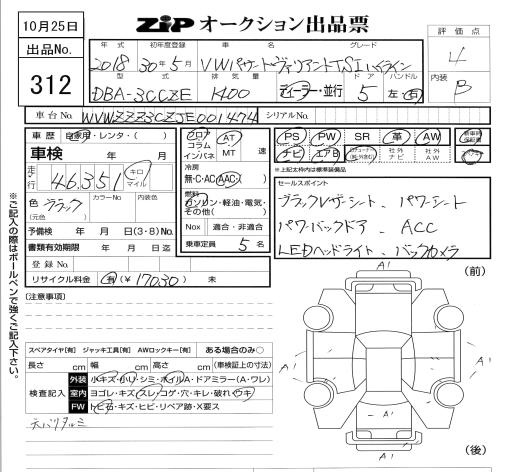 10月25日
出品No.
312
ZIP オークション出品票
評価点
4
内装
B
年式 初年度登録 車名 グレード
2018 30年5月 VWパサートヴァリアントTSIハイライン
型式 排気量 ドア ハンドル
DBA-3CCZE 1400 ディーラー・並行 5 左・右
車台No. WVWZZZ3CZJE001474 シリアルNo.
車歴 自家用・レンタ・( )
車検 年 月
走行 46,351 キロ マイル
色 ブラック カラーNo. 内装色
(元色)
予備検 年 月 日(3・8)No.
書類有効期限 年 月 日迄
登録No.
リサイクル料金 有(¥17030) 未
フロア コラム インパネ
AT MT 速
冷房
無・C・AC・AAC
燃料
ガソリン・軽油・電気・その他( )
Nox 適合・非適合
乗車定員 5 名
PS PW SR 革 AW 新車時保証書
ナビ エアB 社外ナビ 社外AW
※上記太枠内は標準装備品
セールスポイント
ブラックレザーシート、パワーシート
パワーバックドア、ACC
LEDヘッドライト、バックカメラ
※ご記入の際はボールペンで強くご記入下さい。
(注意事項)
スペアタイヤ[有] ジャッキ工具[有] AWロックキー[有] ある場合のみ○
長さ cm 幅 cm 高さ cm (車検証上の寸法)
検査記入
外装 小キズ・小リ・シミ・ホイルA・ドアミラー(A・ワレ)
室内 ヨゴレ・キズ・スレ・コゲ・穴・キレ・破れ・ウキ
FW トビ石・キズ・ヒビ・リペア跡・X要ス
天バリタルミ
(前)
A1
A1
A1
A1
A1
(後)